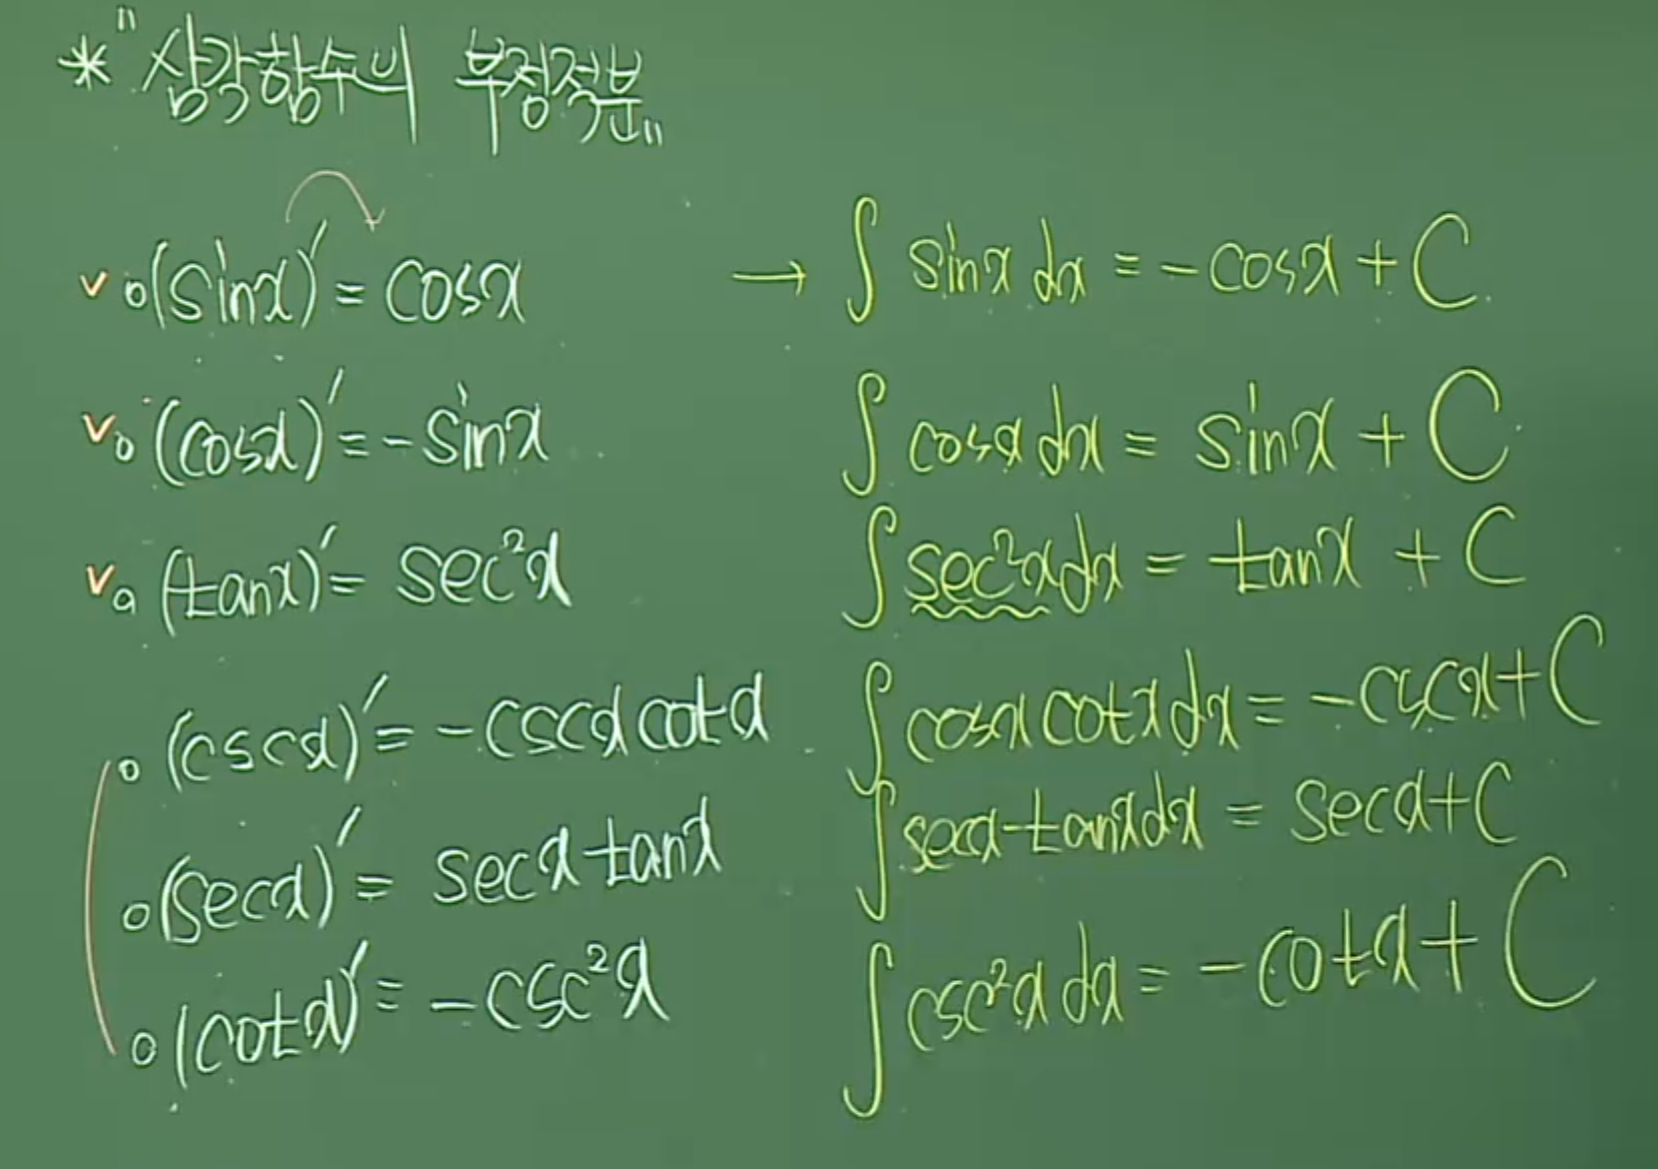 * "삼각함수의 부정적분"
∨ o (sinx)′ = cosx → ∫ sinx dx = -cosx + C
∨ o (cosx)′ = -sinx ∫ cosx dx = sinx + C
∨ o (tanx)′ = sec²x ∫ sec²x dx = tanx + C
o (cscx)′ = -cscx cotx ∫ cosx cotx dx = -cscx + C
o (secx)′ = secx tanx ∫ secx tanx dx = secx + C
o (cotx)′ = -csc²x ∫ csc²x dx = -cotx + C